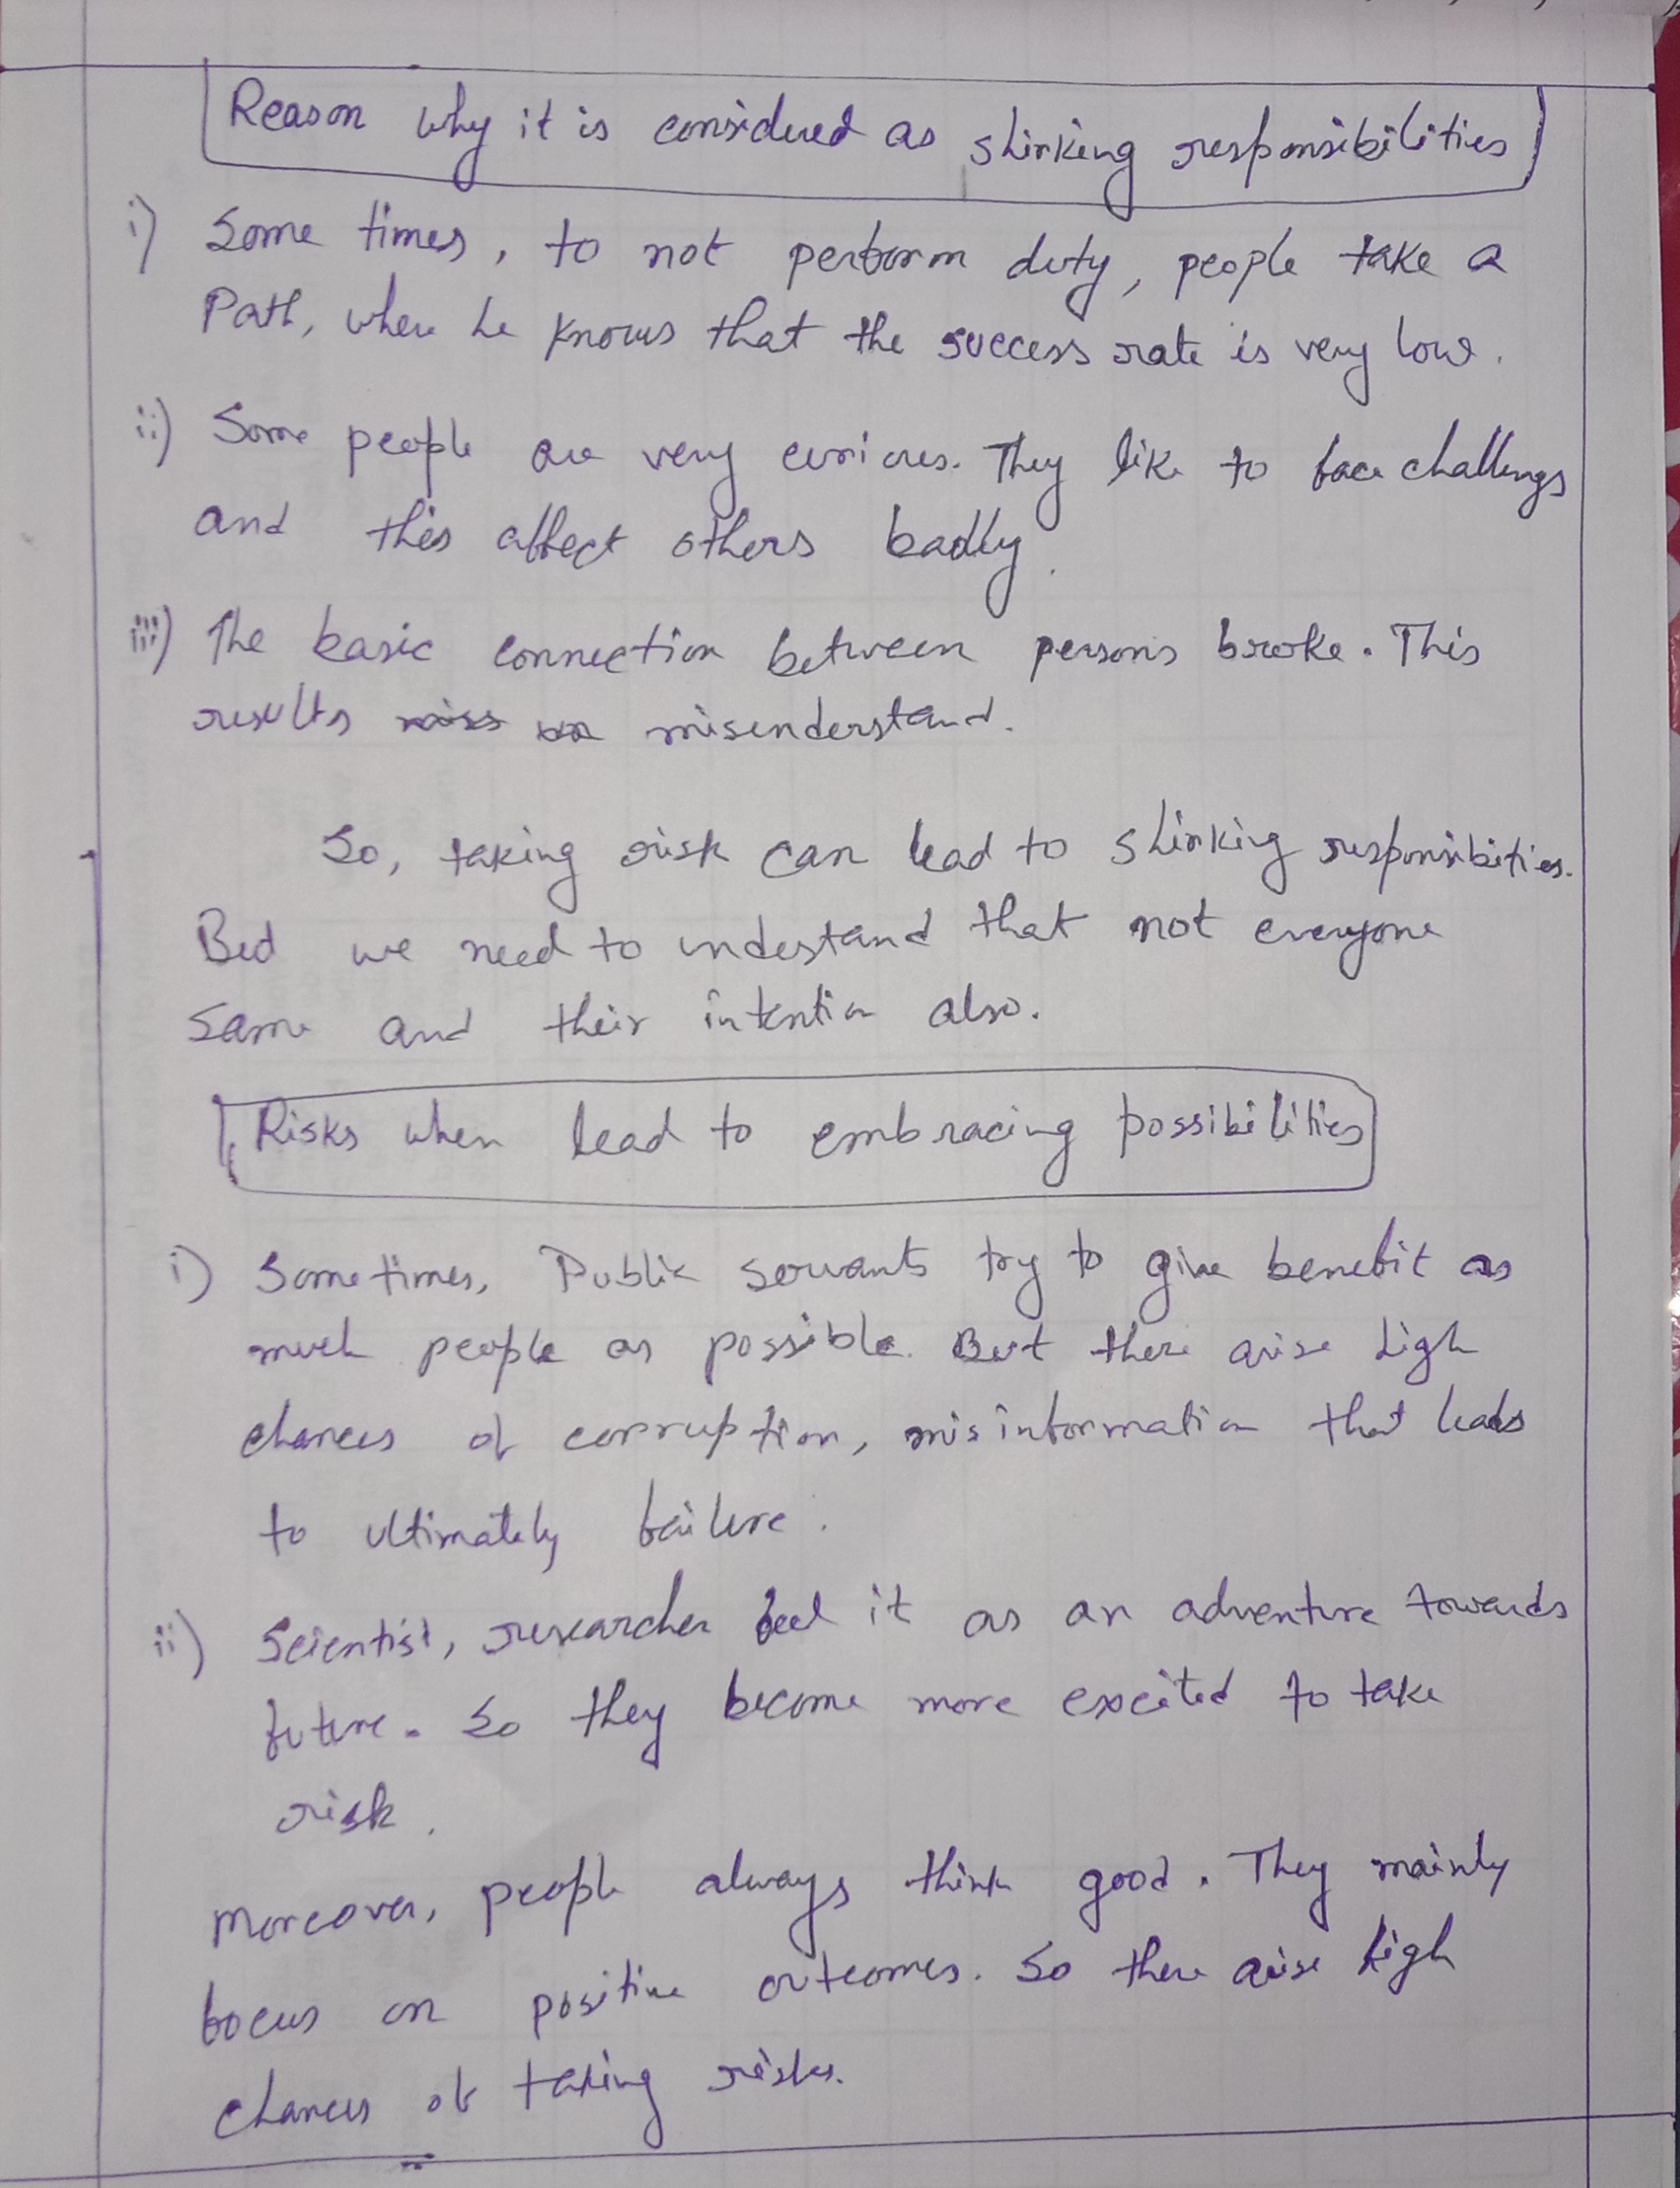 Reason why it is considered as shirking responsibilities
i) Some times, to not perform duty, people take a
Path, where he knows that the success rate is very low.
ii) Some people are very curious. They like to face challengs
and this affect others badly.
iii) The basic connection between persons broke. This
results misenderstand.
So, taking risk can lead to shirking responsibities.
But we need to undestand that not everyone
same and their intention also.
Risks when lead to embracing possibilities
i) Sometimes, Public servants try to give benefit as
much people as possible. But there arise high
chances of corruption, misinformation that leads
to ultimately failure.
ii) Scientist, researcher feel it as an adventure towards
future. So they become more excited to take
risk.
Moreover, people always think good. They mainly
focus on positive outcomes. So there arise high
chances of taking risks.